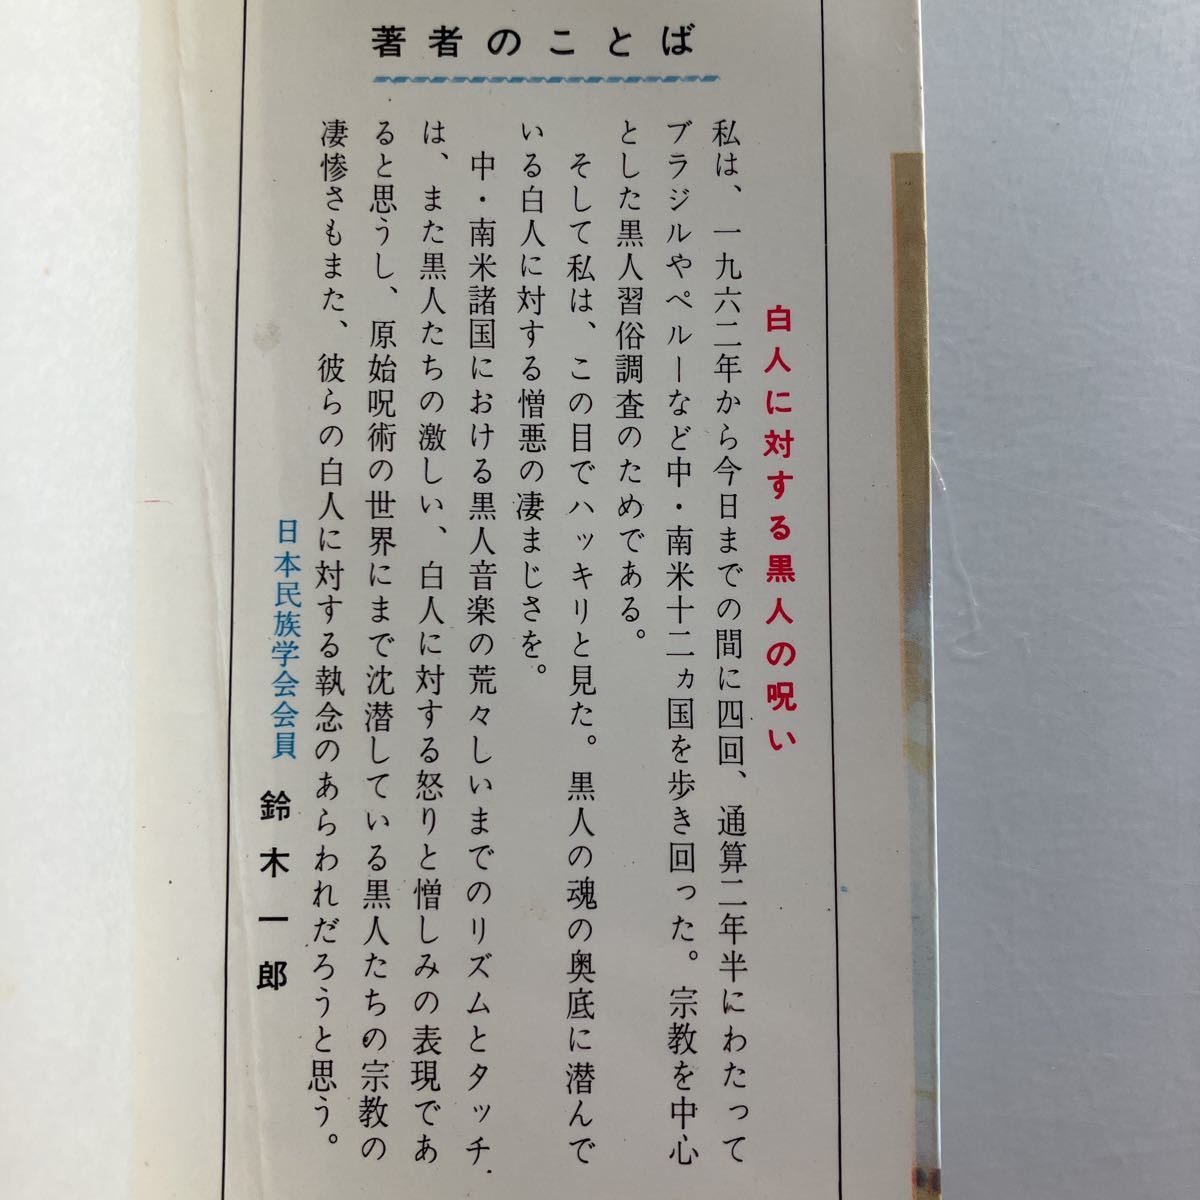 著者のことば
白人に対する黒人の呪い
私は、一九六二年から今日までの間に四回、通算二年半にわたって
ブラジルやペルーなど中・南米十二ヵ国を歩き回った。宗教を中心
とした黒人習俗調査のためである。
そして私は、この目でハッキリと見た。黒人の魂の奥底に潜んで
いる白人に対する憎悪の凄まじさを。
中・南米諸国における黒人音楽の荒々しいまでのリズムとタッチ
は、また黒人たちの激しい、白人に対する怒りと憎しみの表現であ
ると思うし、原始呪術の世界にまで沈潜している黒人たちの宗教の
凄惨さもまた、彼らの白人に対する執念のあらわれだろうと思う。
日本民族学会会員 鈴木一郎